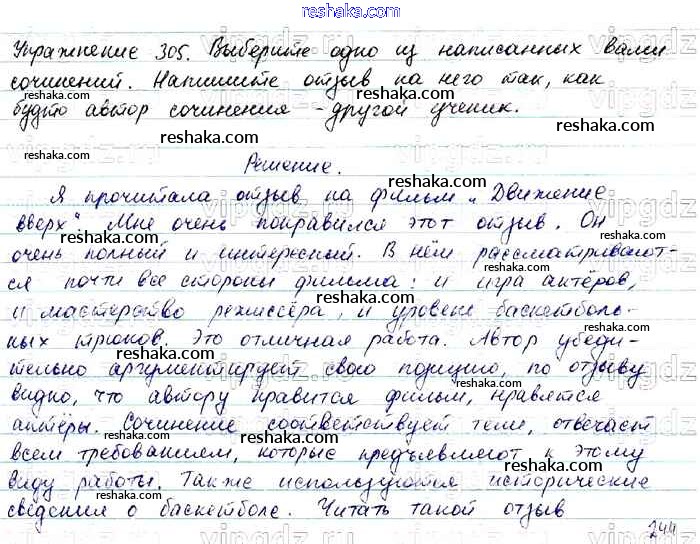 reshaka.com
Упражнение 305. Выберите одно из написанных Вами
reshaka.com
сочинений. Напишите отзыв на него так, как
reshaka.com
будто автор сочинения - другой ученик.
reshaka.com
Решение.
reshaka.com
Я прочитала отзыв на фильм "Движение
reshaka.com
вверх". Мне очень понравился этот отзыв. Он
reshaka.com
очень полный и интересный. В нём рассматривают-
reshaka.com
ся почти все стороны фильма: и игра актёров,
и мастерство режиссёра, и уровень баскетболь-
reshaka.com
ных трюков. Это отличная работа. Автор убеди-
reshaka.com
тельно аргументирует свою позицию, по отзыву
видно, что автору нравится фильм, нравятся
reshaka.com
актёры. Сочинение соответствует теме, отвечает
reshaka.com
всем требованиям, которые предъявляют к этому
reshaka.com
виду работы. Также используются исторические
reshaka.com
сведения о баскетболе. Читать такой отзыв
reshaka.com
244